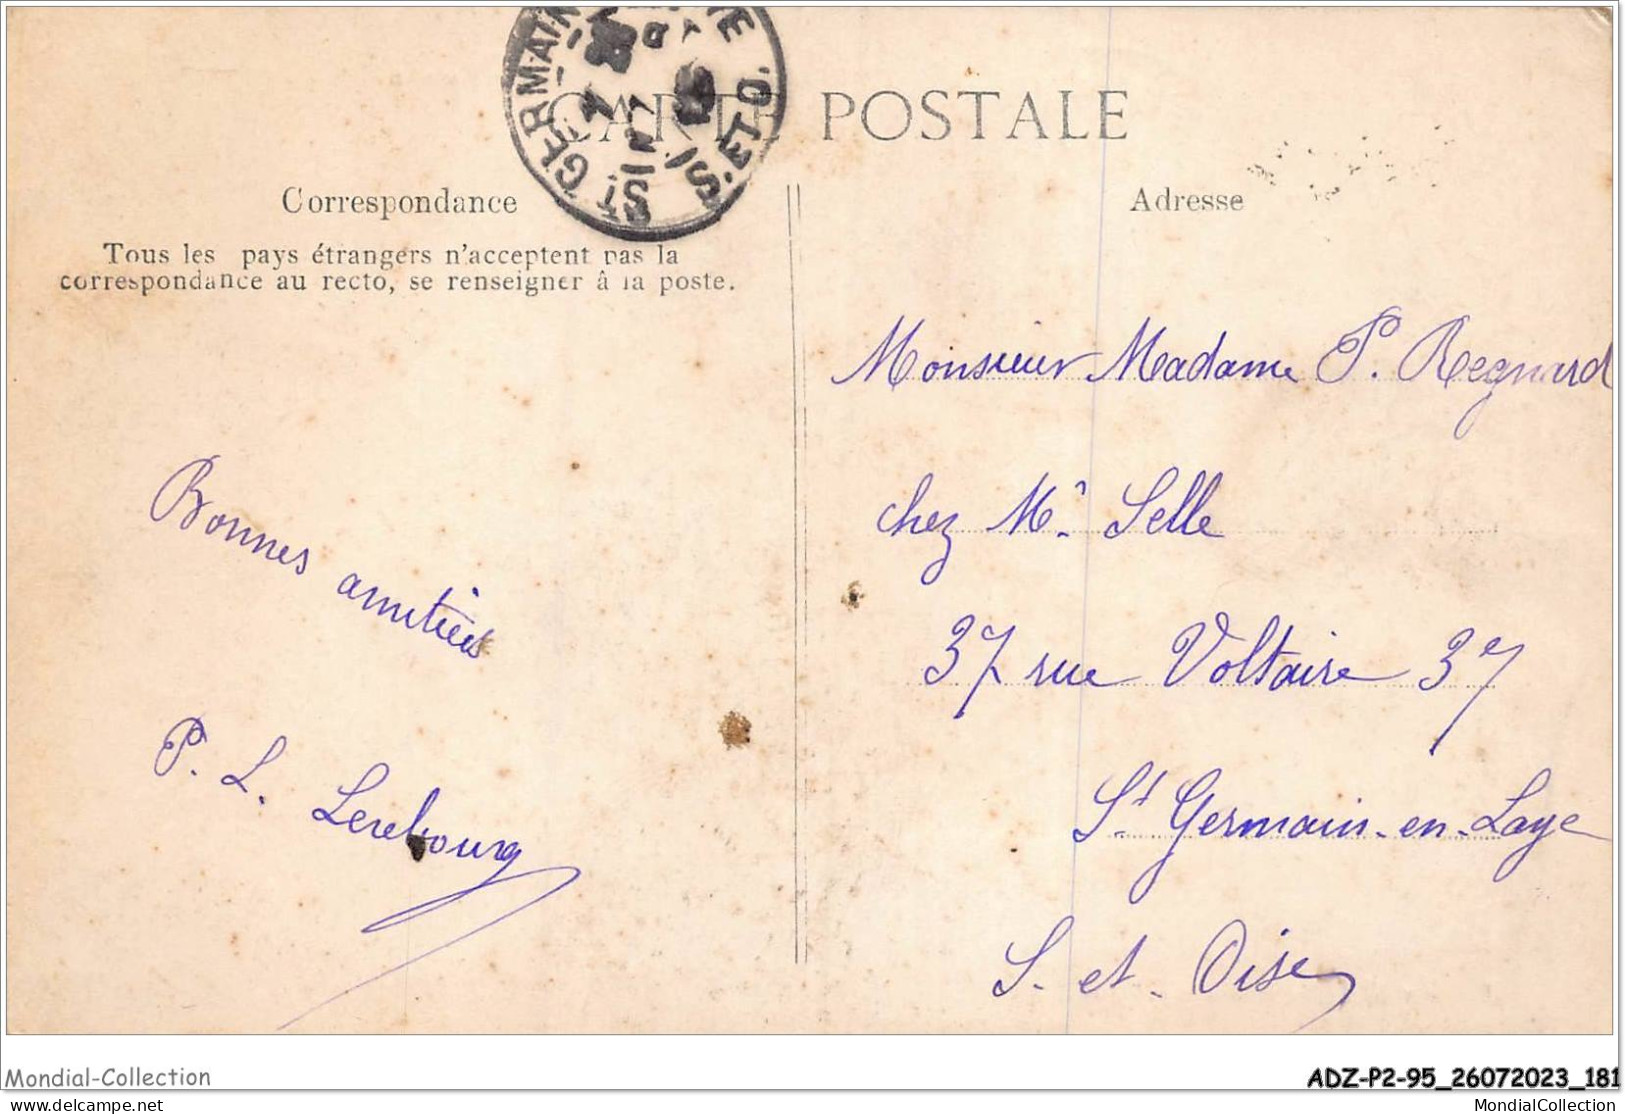 CARTE POSTALE
ST GERMAIN
S. ET O.
Correspondance
Tous les pays étrangers n'acceptent pas la
correspondance au recto, se renseigner à la poste.
Adresse
Bonnes amitiés
P. L. Lerebourg
Monsieur Madame P. Regnard
chez Mr. Selle
37 rue Voltaire 37
St Germain-en-Laye
S. et. Oise
Mondial-Collection
ADZ-P2-95_26072023_181
delcampe.net
MondialCollection